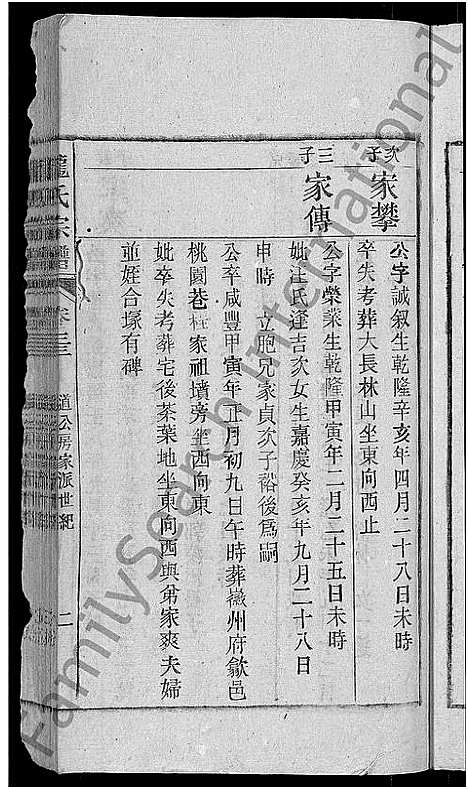 次子
家攀
公字誠叙生乾隆辛亥年四月二十八日未時
卒失考葬大長林山坐東向西止
三子
家傳
公字榮萊生乾隆甲寅年二月二十五日未時
妣汪氏逢吉次女生嘉慶癸亥年九月二十八日
申時 立胞兄家貞次子裕後爲嗣
公卒咸豐甲寅年正月初九日午時葬徽州府歙邑
桃園巷 家祖墳旁坐西向東
妣卒失考葬宅後茶葉地坐東向西與弟家爽夫婦
並姪合塚有碑
氏宗譜
卷
道公房家派世紀
二
FamilySearch International